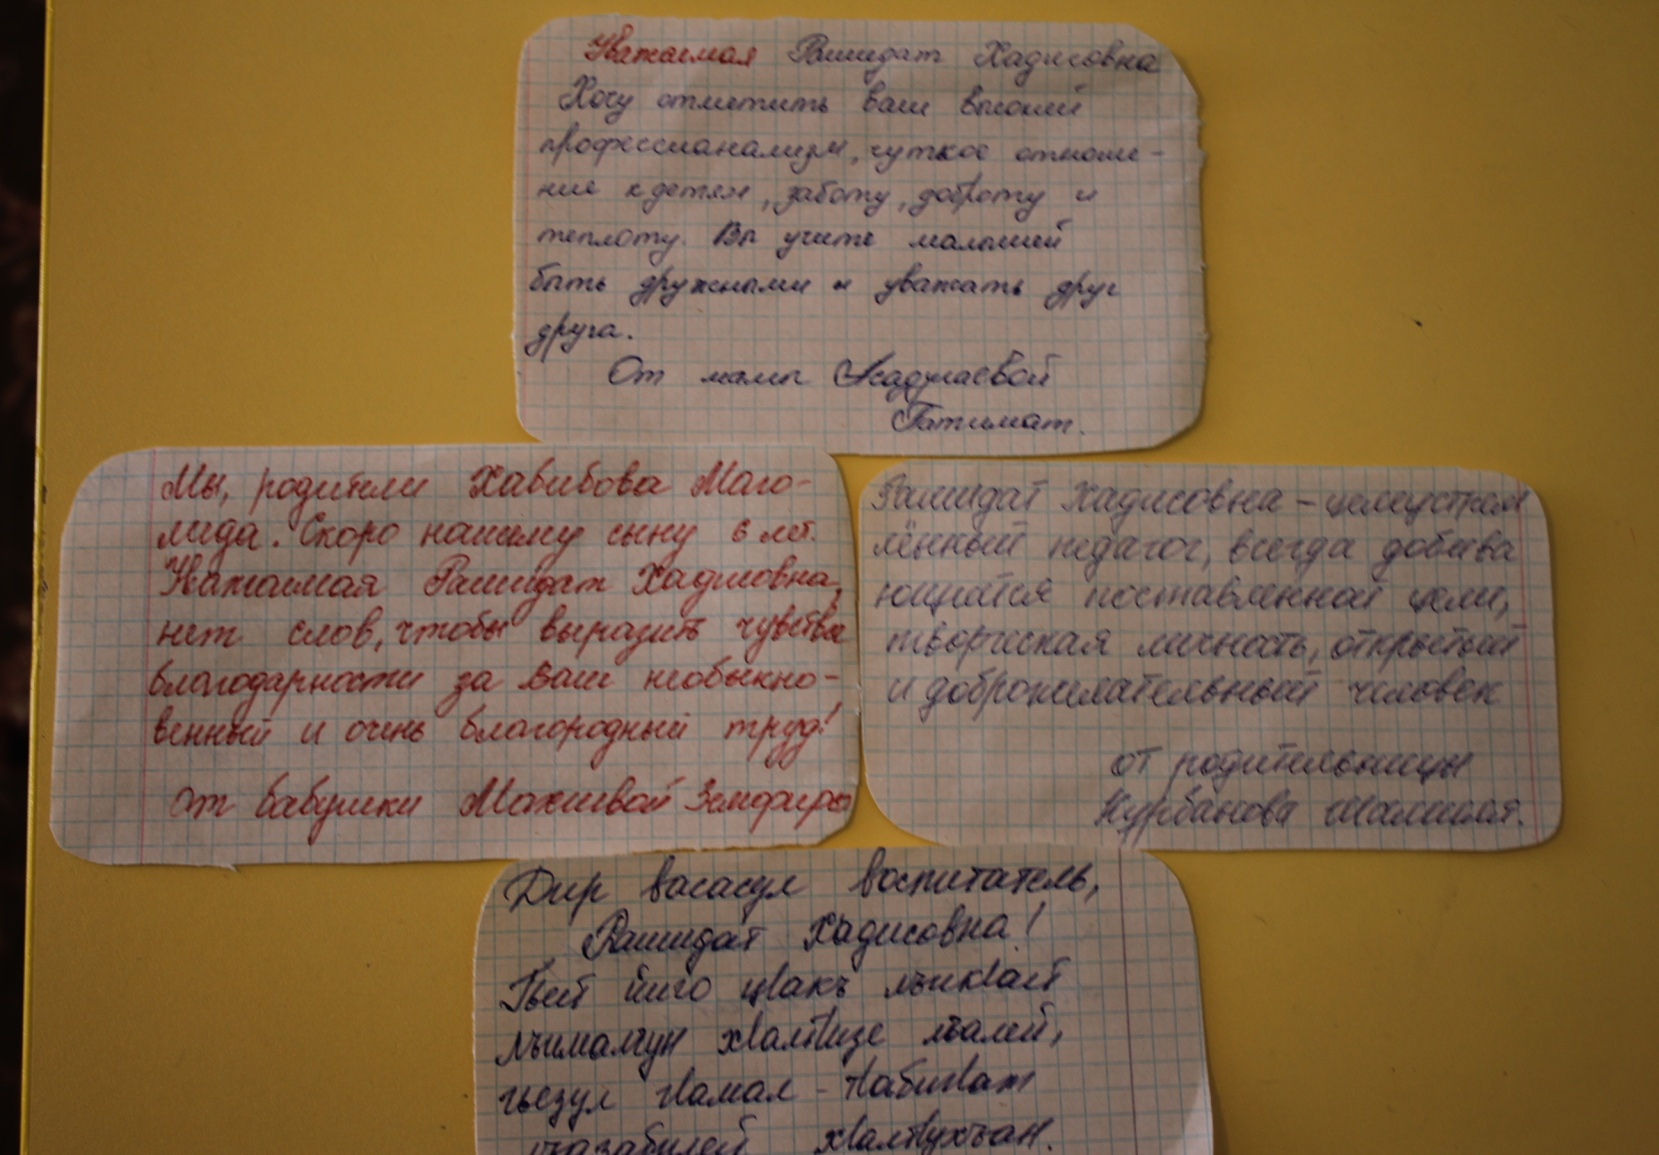 Уважаемая Рашидат Хадисовна
Хочу отметить ваш высокий
профессионализм, чуткое отноше-
ние к детям, заботу, доброту и
теплоту. Вы учите малышей
быть дружными и уважать друг
друга.
От мамы Хаджаевой
Патимат.
Мы, родители Хабибова Маго-
меда. Скоро нашему сыну 6 лет.
Уважаемая Рашидат Хадисовна,
нет слов, чтобы выразить чувства
благодарности за ваш необыкно-
венный и очень благородный труд!
от бабушки Земфиры
Рашидат Хадисовна – целеустрем
лённый педагог, всегда добива
ющийся поставленной цели,
творческая личность, открытый
и доброжелательный человек
от родительницы
Курбанова
Дир васасул воспитатель,
Рашидат Хадисовна!
Гьей йиго цIакъ лъикIай
лъималгун хIалтIизе лъалей,
гьезул гIамал - тIабигIат
хIалтIухъан.